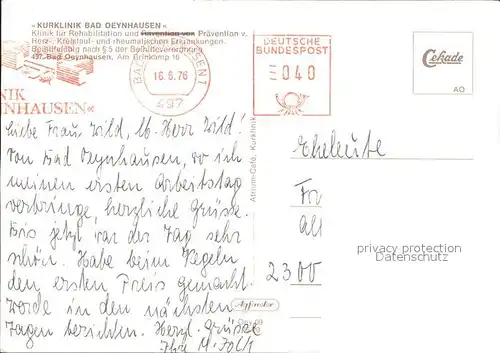 »KURKLINIK BAD OEYNHAUSEN«
Klinik für Rehabilitation und Prävention von Prävention v.
Herz-, Kreislauf- und rheumatischen Erkrankungen.
Beihilfefähig nach § 5 der Beihilfeverordnung
497 Bad Oeynhausen, Am Brinkkamp 16
NIK
YNHAUSEN«
BAD OEYNHAUSEN 1
16.6.76
497
DEUTSCHE
BUNDESPOST
040
Cekade
AO
Liebe Frau Wild, lb. Herr Wild!
Von Bad Oeynhausen, wo ich
meinen ersten Arbeitstag
verbringe, herzliche Grüsse.
Bis jetzt war der Tag sehr
schön. Habe beim Kegeln
den ersten Preis gemacht.
Werde in den nächsten
Tagen berichten. Herzl. Grüsse
Ihr M.
Atrium-Café, Kurklinik
Eheleute
Fr
2300
privacy protection
Datenschutz